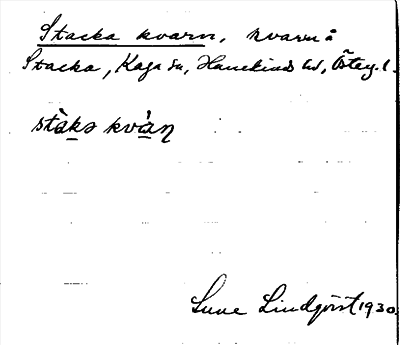 Stacka kvarn, kvarn å
Stacka, Kaga sn, Hanekinds hd, Östg. l.
stàkə kvàn̥
Sune Lindqvist 1930.